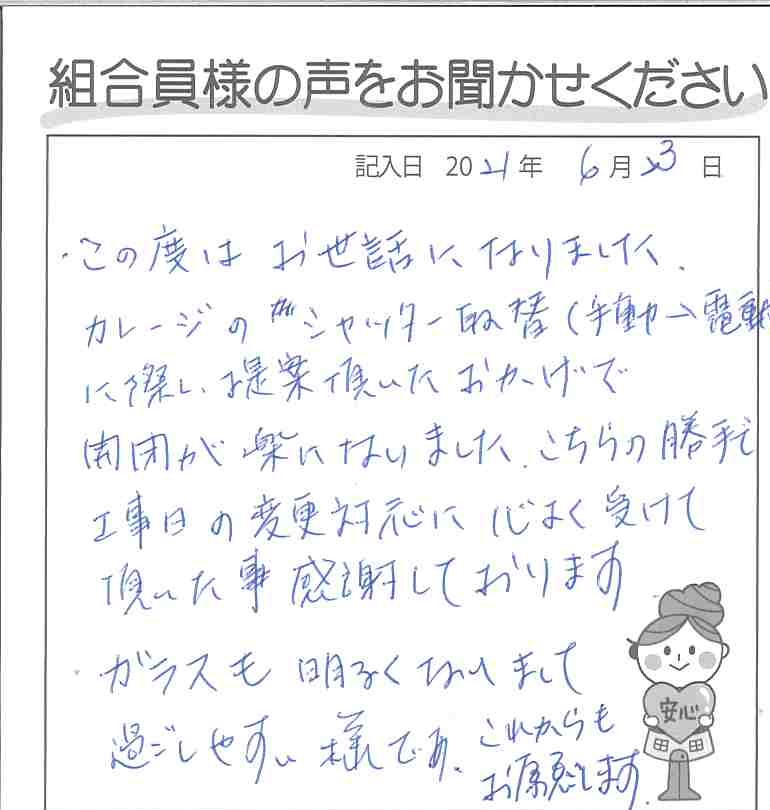 組合員様の声をお聞かせください
記入日 2021年 6月23日
・この度は お世話に なりました、
ガレージの シャッター取替(手動→電動
に際し、提案頂いた おかげで
開閉が楽になりました、こちらの勝手で
工事日の変更対応に 心よく受けて
頂いた事感謝しております
ガラスも 明るくなりまして
過ごしやすい 様です。これからも
お願いします
安心